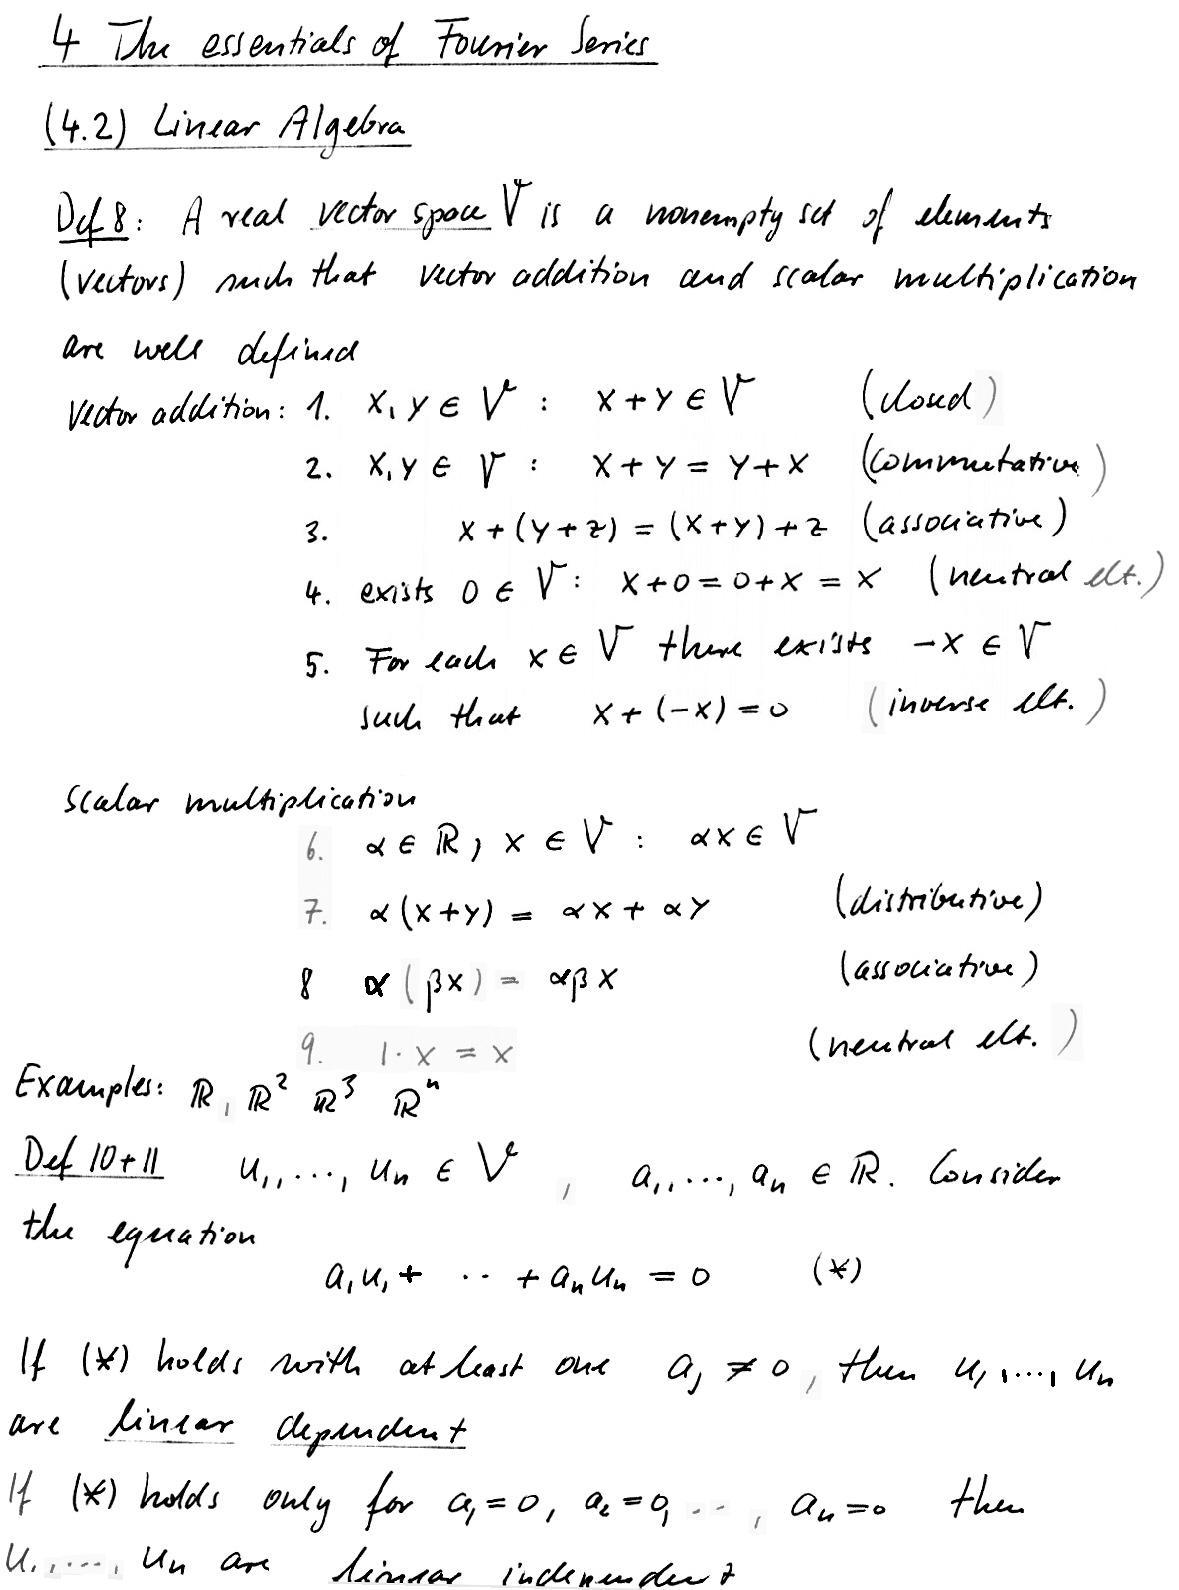 4 The essentials of Fourier Series
(4.2) Linear Algebra
Def 8: A real vector space V is a nonempty set of elements
(vectors) such that vector addition and scalar multiplication
are well defined
Vector addition: 1. x, y ∈ V : x + y ∈ V (closed)
2. x, y ∈ V : x + y = y + x (commutative)
3. x + (y + z) = (x + y) + z (associative)
4. exists 0 ∈ V : x + 0 = 0 + x = x (neutral elt.)
5. For each x ∈ V there exists -x ∈ V
such that x + (-x) = 0 (inverse elt.)
Scalar multiplication
6. α ∈ ℝ, x ∈ V : αx ∈ V
7. α(x+y) = αx + αy (distributive)
8 α(βx) = αβx (associative)
9. 1·x = x (neutral elt.)
Examples: ℝ, ℝ² ℝ³ ℝⁿ
Def 10+11 u₁, ..., uₙ ∈ V, a₁, ..., aₙ ∈ ℝ. Consider
the equation
a₁u₁ + .. + aₙuₙ = 0 (*)
If (*) holds with at least one aⱼ ≠ 0, then u₁, ..., uₙ
are linear dependent
If (*) holds only for a₁=0, a₂=0, .., aₙ=0 then
u₁, ..., uₙ are linear independent